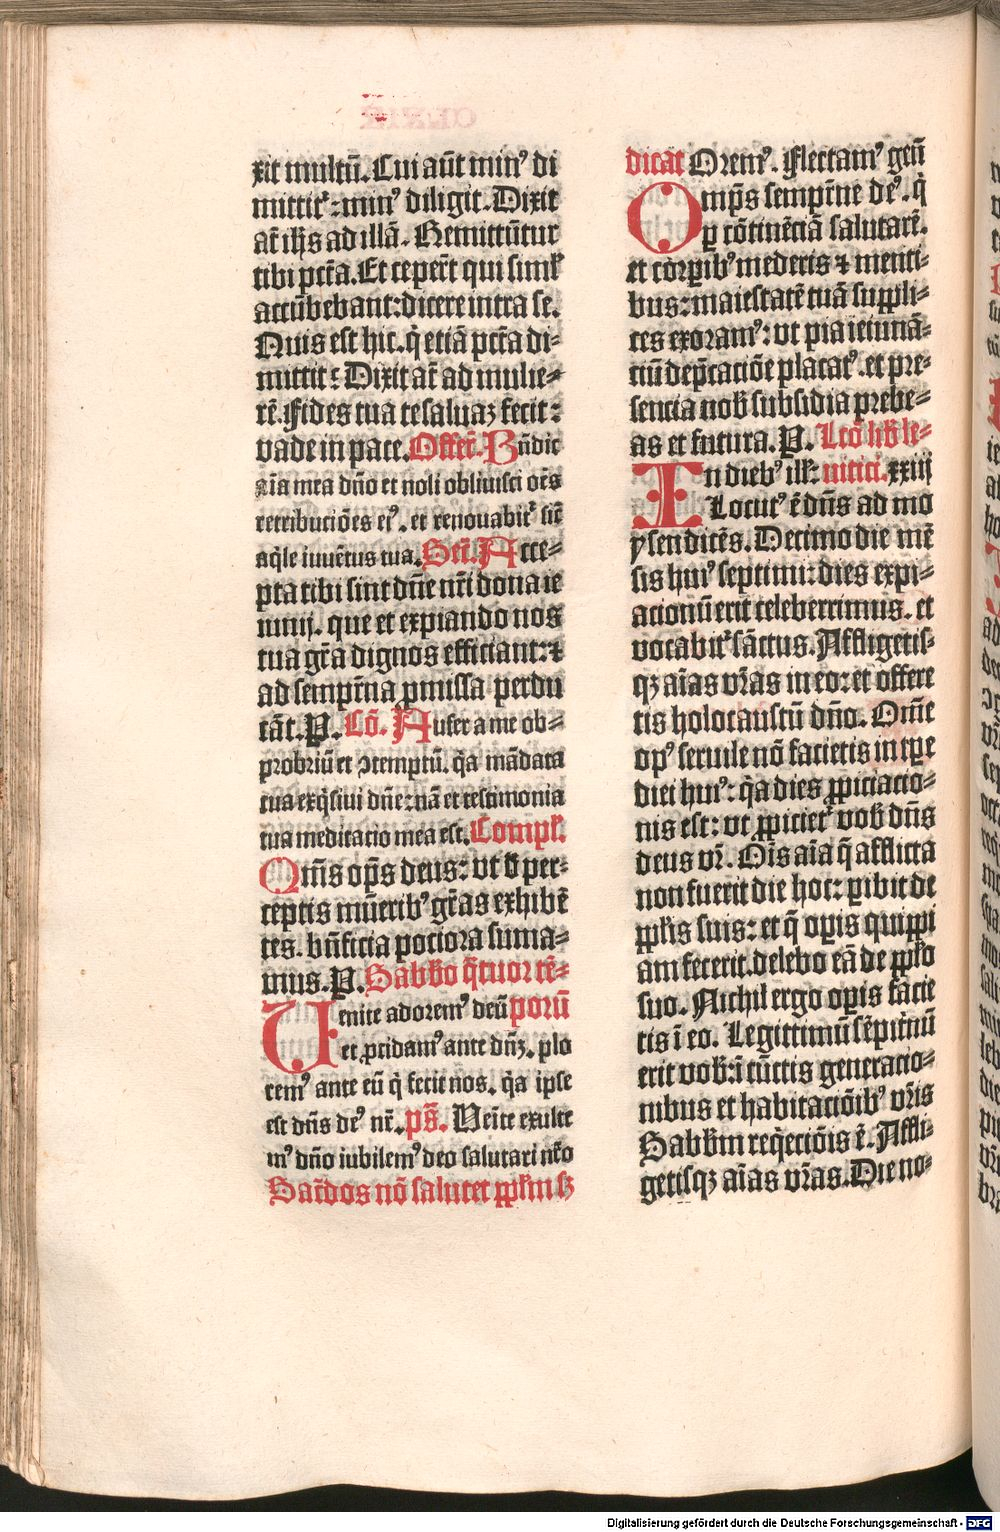 xit multū. Cui aūt minꝰ di
mittit᷑: minꝰ diligit. Dixit
at̄ ih̄s ad illā. Remittūtur
tibi pctā. Et ceper̄t qui simł
accūbebant: dicere intra se.
Quis est hic. q̇ etiā pctā di⸗
mittit: Dixit at̄ ad mulie⸗
rē. Fides tua te saluaꝫ fecit:
vade in pace. Offer̄. Bn̄dic
aīa mea dn̄o et noli obliuisci oēs
retribuciōes eiꝰ. et renouabit᷑ sic̄
aq̇le iuuētus tua. Secr̄. Acce⸗
pta tibi sint dn̄e nr̄i dona ie
iunij. que et expiando nos
tua gr̄a dignos efficiant: ⁊
ad semp̄rna ꝓmissa perdu
cāt. P. Cō. Aufer a me ob⸗
probriū et ↄtemptū. q̄a mādata
tua exq̇siui dn̄e: nā et testimonia
tua meditacio mea est. Compł.
Qm̄s op̄s deus: vt ꝺ̄ per⸗
ceptis mūeribꝰ gr̄as exhibē
tes. bn̄ficia potiora suma⸗
mus. P. Sabbō q̄tuor tē⸗
Uenite adoremꝰ deū porū
et ꝓcidamꝰ ante dn̄ꝫ. plo
remꝰ ante eū q̇ fecit nos. q̄a ipse
est dn̄s deꝰ nr̄. pš. Uenīte exulte
mꝰ dn̄o iubilemꝰ deo salutari nr̄o
Sac̄rdos nō salutet ppłm sꝫ
dicat Oremꝰ. Flectamꝰ genū
Omp̄s semp̄rne deꝰ. q̇
ꝑ cōtinēciā salutarē.
et corꝑibꝰ mederis ⁊ menti⸗
bus: maiestatē tuā suppli⸗
ces exoramꝰ: vt pia ieiunā⸗
ciū dep̄caciōe placatꝰ. et pre⸗
sencia nob̄ subsidia prebe⸗
as et futura. P. Lcō lib̄ le⸗
In diebꝰ ill̄: uitici. xxiij
Locutꝰ ē dn̄s ad mo
ysen dicēs. Decimo die mē
sis huiꝰ septimi: dies expi⸗
acionū erit celeberrimus. et
vocabit᷑ sāctus. Affligetis⸗
qꝫ aīas vr̄as in eo: et offere
tis holocaustū dn̄o. Om̄e
opꝰ seruile nō facietis in tꝑe
diei huiꝰ: q̄a dies ꝓpiciacio⸗
nis est: vt ꝓpiciet᷑ vob̄ dn̄s
deus vr̄. Oīs aīa q̄ afflicta
non fuerit die hoc: ꝑibit de
ppłis suis: et q̄ oꝑis quippi
am fecerit. delebo eā de ppło
suo. Nichil ergo oꝑis facie
tis ī eo. Legittimū sēpit̄nū
erit vob̄: ī cūctis generacio⸗
nibus et habitaciōibꝰ vr̄is
Sabbm̄ req̇eciōis ē. Affli⸗
getisqꝫ aīas vr̄as. Die no⸗
Digitalisierung gefördert durch die Deutsche Forschungsgemeinschaft - DFG